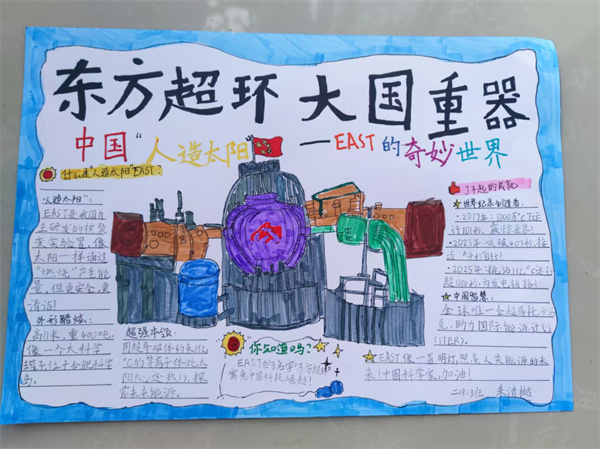 东方超环 大国重器
中国"人造太阳"
—EAST的奇妙世界
什么是"人造太阳"EAST?
"人造太阳":
EAST是我国自
主研发的核聚
变实验装置,像
太阳一样通过
"燃烧"产生能
量,但更安全,更
清洁!
外形酷炫:
高11米,重400吨,
像一个大科学
罐子住于合肥科学
岛。
超强本领:
用超导磁体约束亿
℃的等离子体比太
阳
来未来能源。
你知道吗?
EAST的名字"东方超环"
寓意中国科技
了不起的成就
世界纪录创造者:
·2017年:5000万℃运
行101秒,
·2023年:突破403秒,接
近
·2025年:挑战1亿℃运行
超1000秒,
中国智慧:
全球唯一全超导托卡马
克,助力国际能源计划
(ITER)。
EAST像一盏明灯,照亮人类能源的未
来!中国科学家,加油!